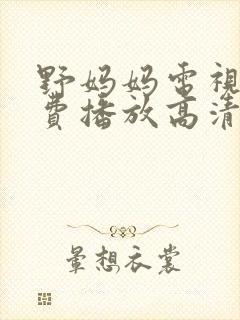 野妈妈电視
費播放高清
暈想衣裳